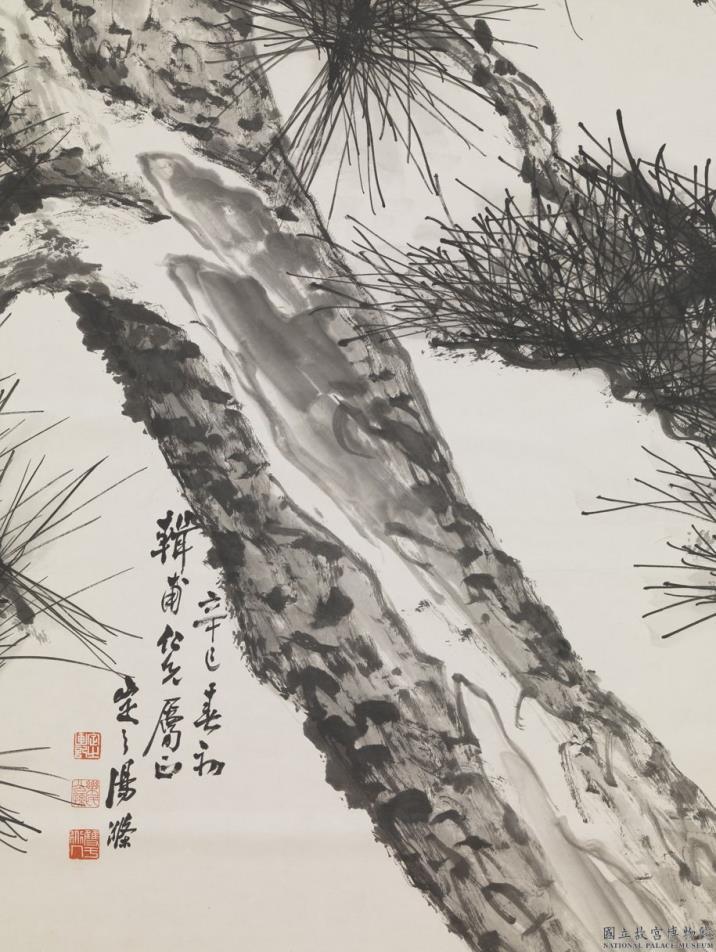 辛巳春初
輯甫仁兄屬正
定之湯滌
國立故宮博物院
NATIONAL PALACE MUSEUM